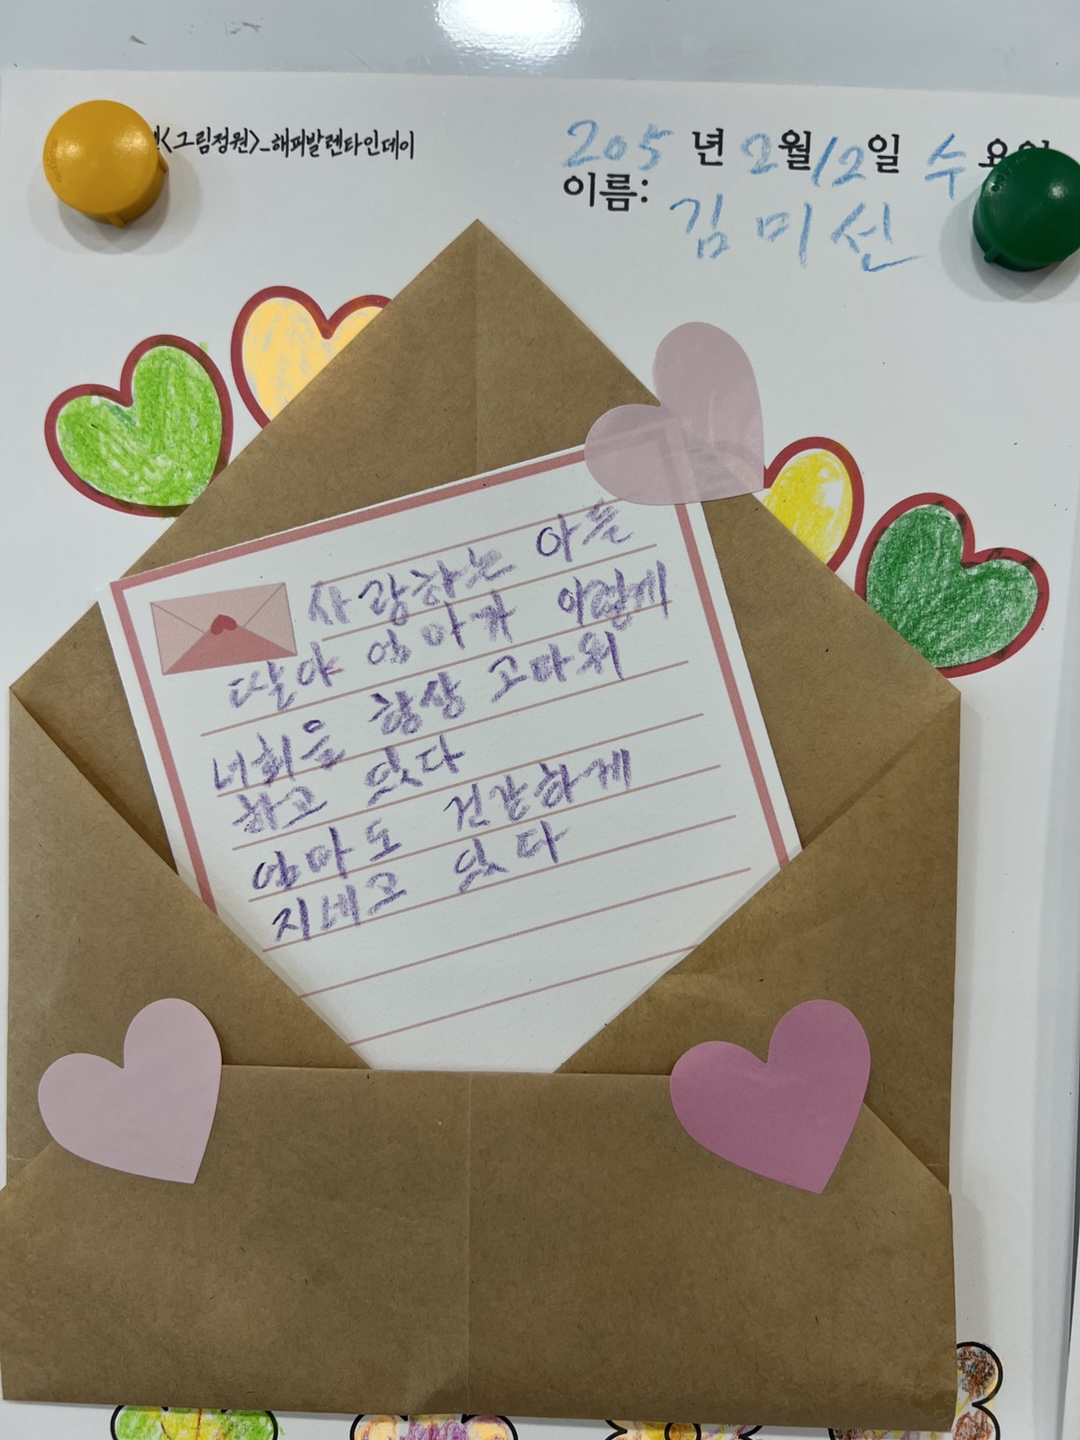 <그림정원>_해피발렌타인데이
205 년 2월 12일 수 요일
이름: 김미선
사랑하는 아들
딸아 엄마가 어렵게
너희을 항상 고마워
하고 있다
엄마도 건간하게
지네고 있다